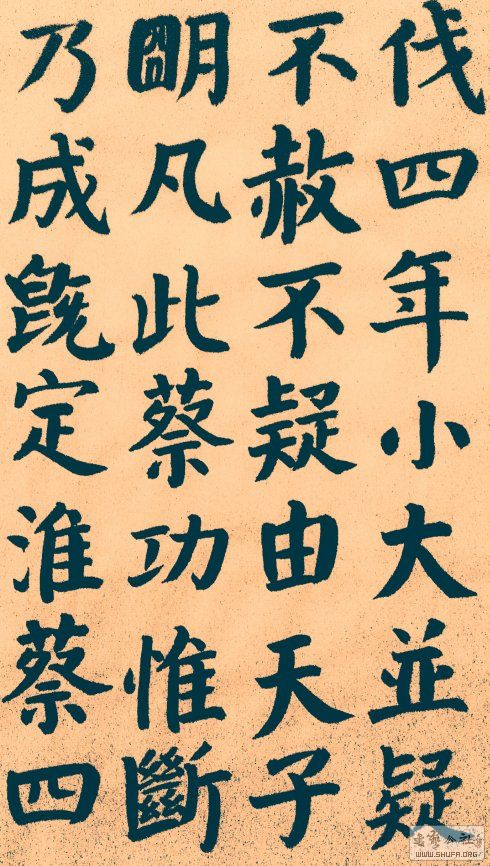 伐四年小大並疑
不赦不疑由天子
朙凡此蔡功惟斷
乃成旣定淮蔡四
WWW.SHUFA.ORG/